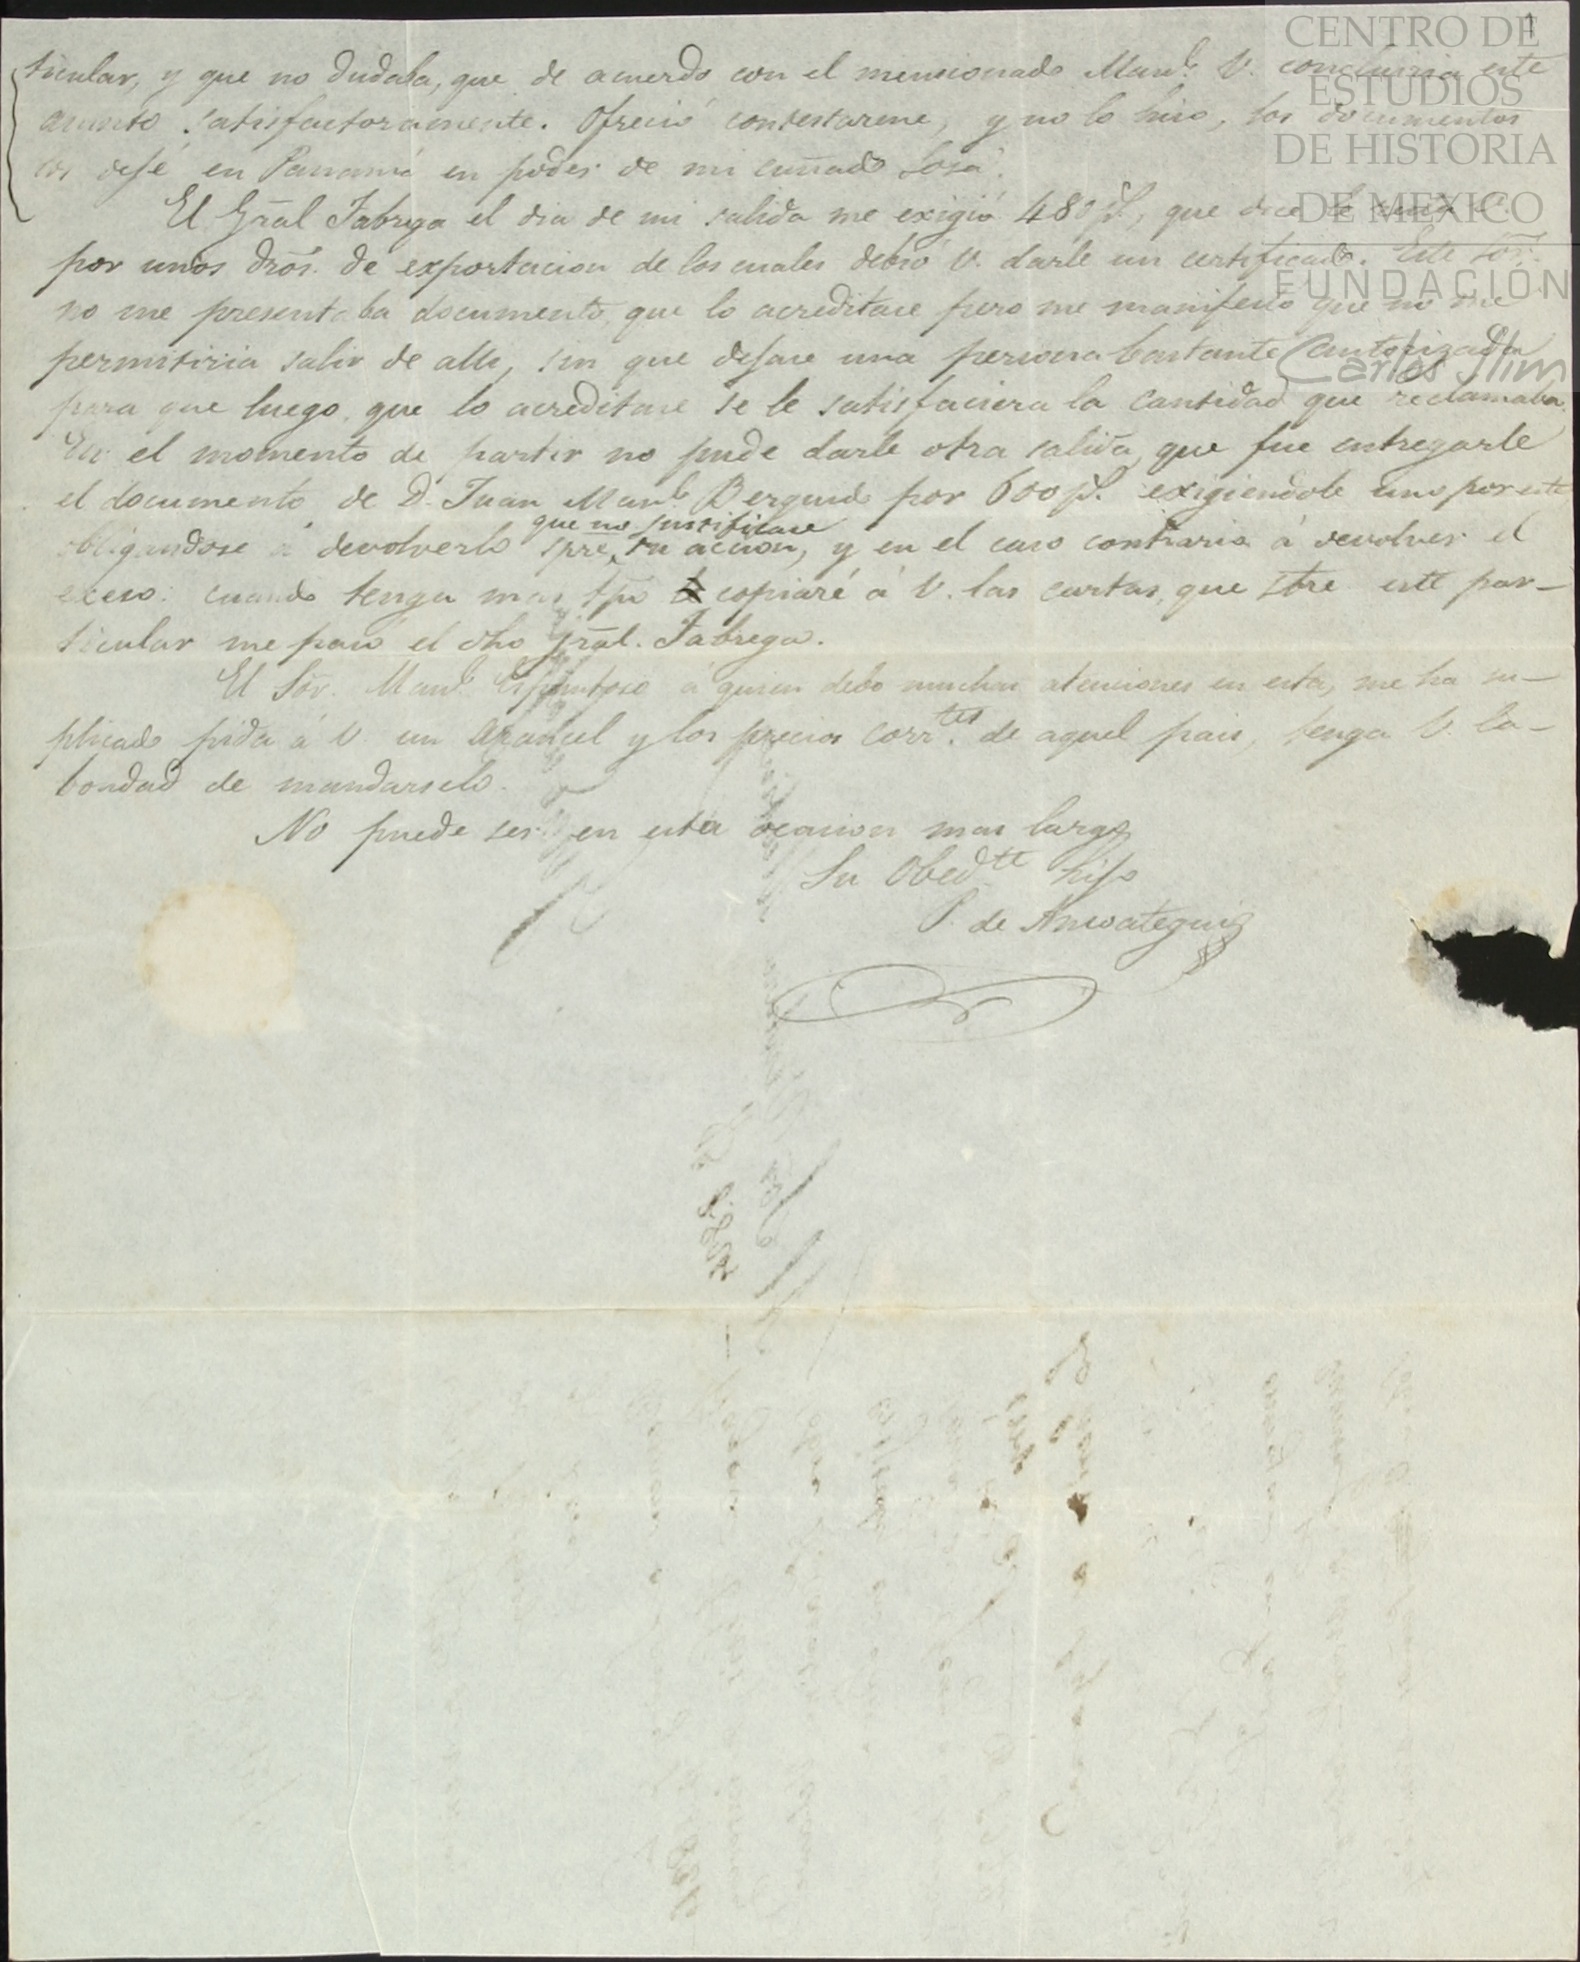 1
CENTRO DE
ESTUDIOS
DE HISTORIA
DE MEXICO
FUNDACIÓN
Carlos Slim
ticular, y que no dudaba, que de acuerdo con el mencionado Man.l V. concluiria este
asunto satisfactoramente. Ofreció contestarme, y no lo hiso, los documentos
los dejé en Panamá en poder de mi cuñado Sosa.
El Gral Fabrega el dia de mi salida me exigió 480 p.s, que dice le
por unos dros. de exportacion de los cuales debió V. darle un certificado. Este Sor.
no me presentaba documento que lo acreditase pero me manifestó que no me
permitiria salir de alli, sin que dejase una persona bastante autorizada
para que luego que lo acreditase se le satisfaciera la cantidad que reclamaba.
En el momento de partir no pude darle otra salida que fue entregarle
el documento de D. Juan Man.l Berguido por 600 p.s exigiendole uno por este
obligandose á devolverlo spre que no justificase su accion, y en el caso contrario á devolver el
exeso: cuando tenga mas tpo copiaré á V. las cartas que sbre este par-
ticular me pasó el dho Gral. Fabrega.
El Sor. Man.l á quien debo muchas atenciones en esta, me ha su-
plicado pida á V. un Arancel y los precios corr.tes de aquel pais, tenga V. la-
bondad de mandarselo.
No puede ser en esta ocasion mas largo
Su Obed.te hijo
P. de Ansoategui